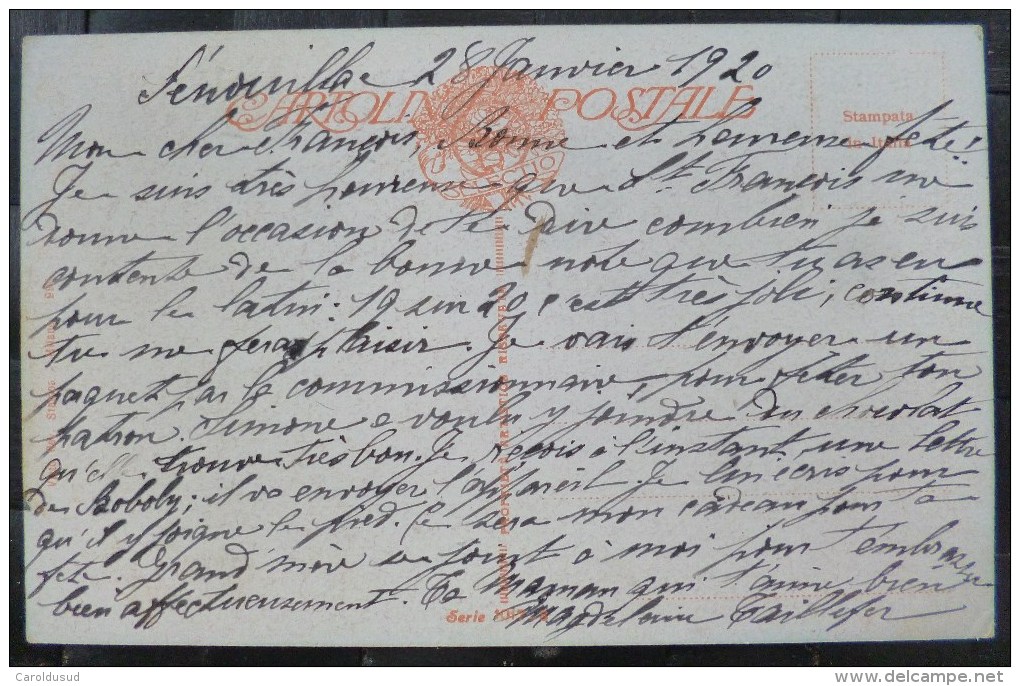 28 Janvier 1920
CARTOLINA POSTALE
Stampata
Mon cher François, bonne et heureuse fête!
Je suis très heureuse que St François me
donne l'occasion de te dire combien je suis
contente de la bonne note que tu as eu
pour le latin: 19 sur 20 c'est très joli, continue
tu me feras plaisir. Je vais t'envoyer un
paquet par le commissionnaire, pour fêter ton
patron. Simone a voulu y joindre du chocolat
qu'elle trouve très bon. Je reçois à l'instant une lettre
de Boboly; il va envoyer l'appareil. Je lui écris pour
qu'il y joigne le pied. Ce sera mon cadeau pour ta
fête. Grand'mère se joint à moi pour t'embrasser
bien affectueusement. Ta maman qui t'aime bien
Serie
Magdeleine Taillefer
Caroldusud
delcampe.net